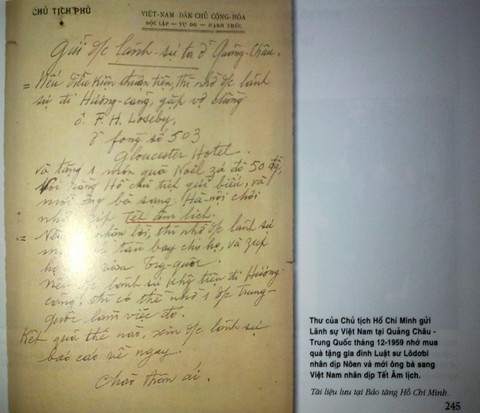 CHỦ TỊCH PHỦ
VIỆT-NAM DÂN CHỦ CỘNG-HÒA
ĐỘC LẬP — TỰ DO — HẠNH PHÚC
Gửi đ/c lãnh-sự ta ở Quảng-Châu.
= Nếu điều kiện thuận tiện, thì nhờ đ/c lãnh
sự đi Hương-cảng, gặp vợ chồng
ô. F. H. Loseby,
ở fòng số 503
Gloucester Hotel.
và tặng 1 món quà Noël zá độ 50 đ,
nói rằng Hồ chủ tịch gửi biếu, và
mời ông bà sang Hà-nội chơi
nhân zịp Tết âm lịch.
= Nếu nhận lời, thì nhờ đ/c lãnh sự
vé tàu bay cho họ, và zúp
họ visa Trg-quốc.
Nếu đ/c lãnh sự không tiện đi Hương
cảng, thì có thể nhờ 1 đ/c Trung-
quốc làm việc đó.
Kết quả thế nào, xin đ/c lãnh sự
báo cáo về ngay.
Chào thân ái.
Thư của Chủ tịch Hồ Chí Minh gửi
Lãnh sự Việt Nam tại Quảng Châu -
Trung Quốc tháng 12-1959 nhờ mua
quà tặng gia đình Luật sư Lôdơbi
nhân dịp Nôen và mời ông bà sang
Việt Nam nhân dịp Tết Âm lịch.
Tài liệu lưu tại Bảo tàng Hồ Chí Minh.
245